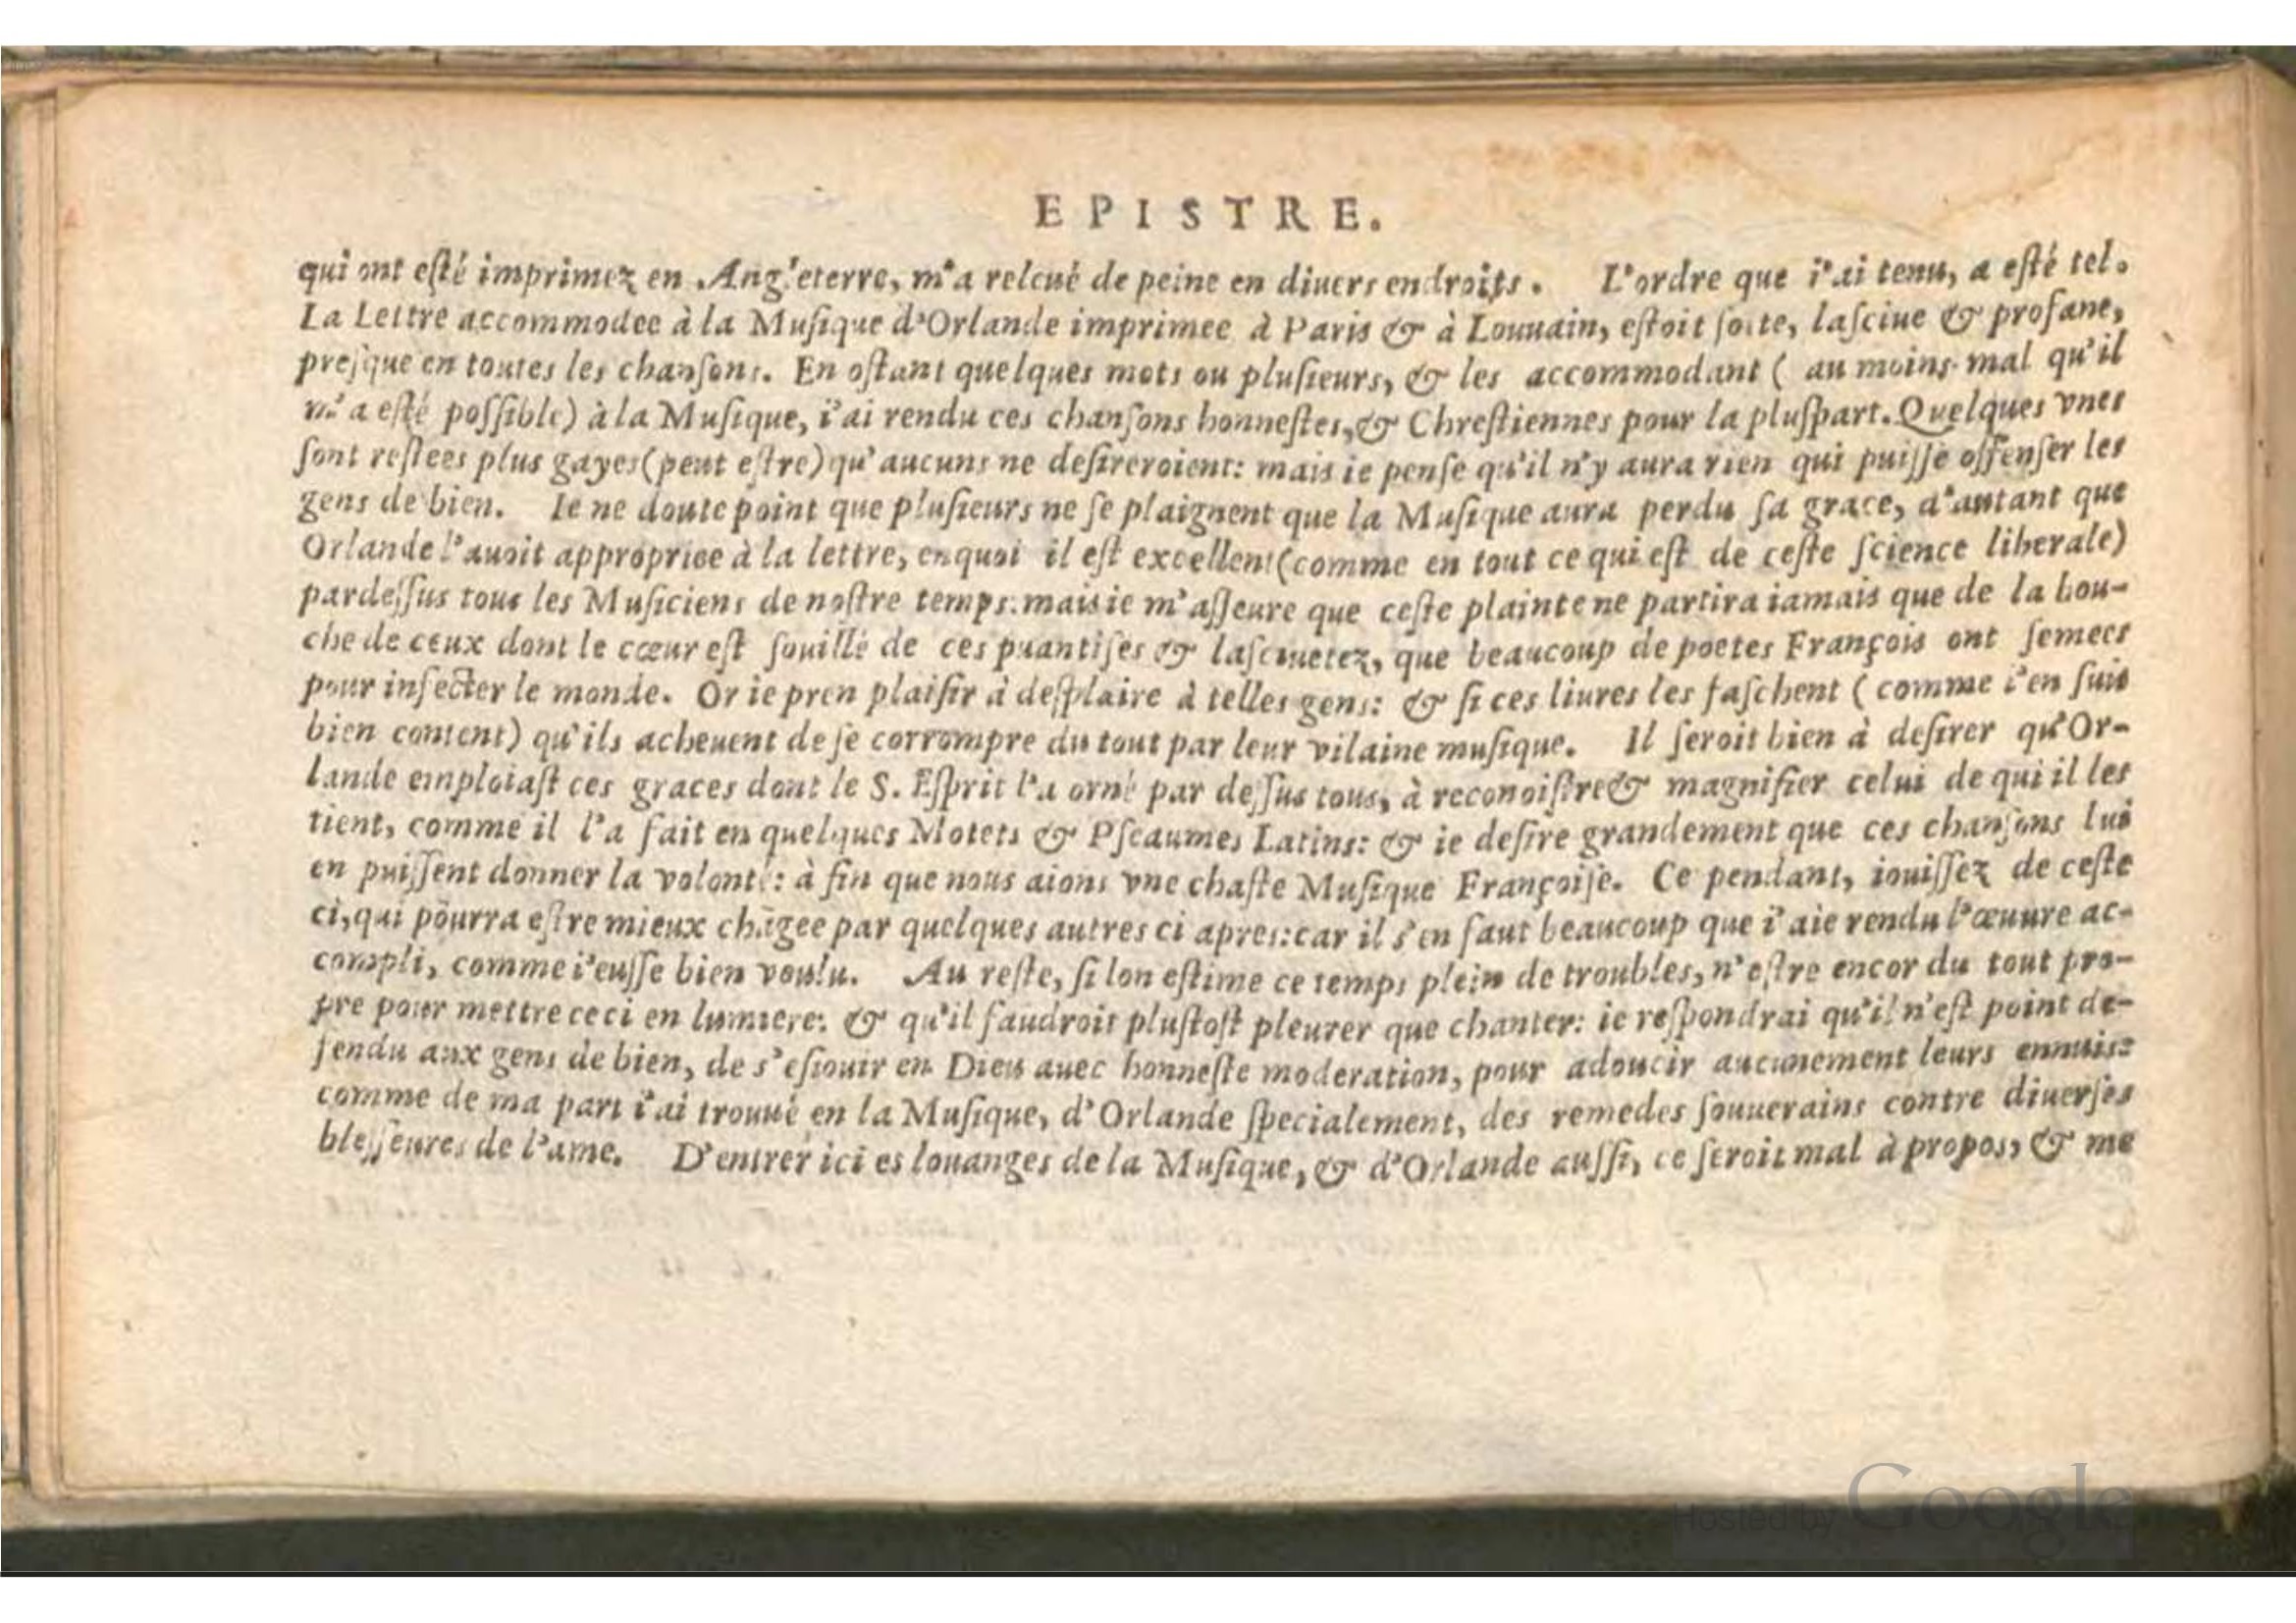 EPISTRE.
qui ont eſté imprimez en Angleterre, m'a releué de peine en diuers endroits. L'ordre que i'ai tenu, a eſté tel.
La Lettre accommodee à la Muſique d'Orlande imprimee à Paris & à Louuain, eſtoit ſotte, laſciue & profane,
preſque en toutes les chanſons. En oſtant quelques mots ou pluſieurs, & les accommodant ( au moins mal qu'il
m'a eſté poſſible) à la Muſique, i'ai rendu ces chanſons honneſtes, & Chreſtiennes pour la pluſpart. Quelques vnes
ſont reſtees plus gayes (peut eſtre) qu'aucuns ne deſireroient: mais ie penſe qu'il n'y aura rien qui puiſſe offenſer les
gens de bien. Ie ne doute point que pluſieurs ne ſe plaignent que la Muſique aura perdu ſa grace, d'autant que
Orlande l'auoit appropriee à la lettre, enquoi il eſt excellent (comme en tout ce qui eſt de ceſte ſcience liberale)
pardeſſus tous les Muſiciens de noſtre temps: mais ie m'aſſeure que ceſte plainte ne partira iamais que de la bou-
che de ceux dont le cœur eſt ſouillé de ces puantiſes & laſciuetez, que beaucoup de poetes François ont ſemees
pour infecter le monde. Or ie pren plaiſir à deſplaire à telles gens: & ſi ces liures les faſchent ( comme i'en ſuis
bien content) qu'ils acheuent de ſe corrompre du tout par leur vilaine muſique. Il ſeroit bien à deſirer qu'Or-
lande emploiaſt ces graces dont le S. Eſprit l'a orné par deſſus tous, à reconoiſtre & magnifier celui de qui il les
tient, comme il l'a fait en quelques Motets & Pſeaumes Latins: & ie deſire grandement que ces chanſons lui
en puiſſent donner la volonté: à fin que nous aions vne chaſte Muſique Françoiſe. Ce pendant, iouiſſez de ceſte
ci, qui pourra eſtre mieux chāgee par quelques autres ci apres: car il s'en faut beaucoup que i'aie rendu l'œuure ac-
compli, comme i'euſſe bien voulu. Au reſte, ſi lon eſtime ce temps plein de troubles, n'eſtre encor du tout pro-
pre pour mettre ceci en lumiere: & qu'il faudroit pluſtoſt pleurer que chanter: ie reſpondrai qu'il n'eſt point de-
fendu aux gens de bien, de s'eſiouir en Dieu auec honneſte moderation, pour adoucir aucunement leurs ennuis:
comme de ma part i'ai trouué en la Muſique, d'Orlande ſpecialement, des remedes ſouuerains contre diuerſes
bleſſeures de l'ame. D'entrer ici es louanges de la Muſique, & d'Orlande auſſi, ce ſeroit mal à propos, & me
Hosted by Google